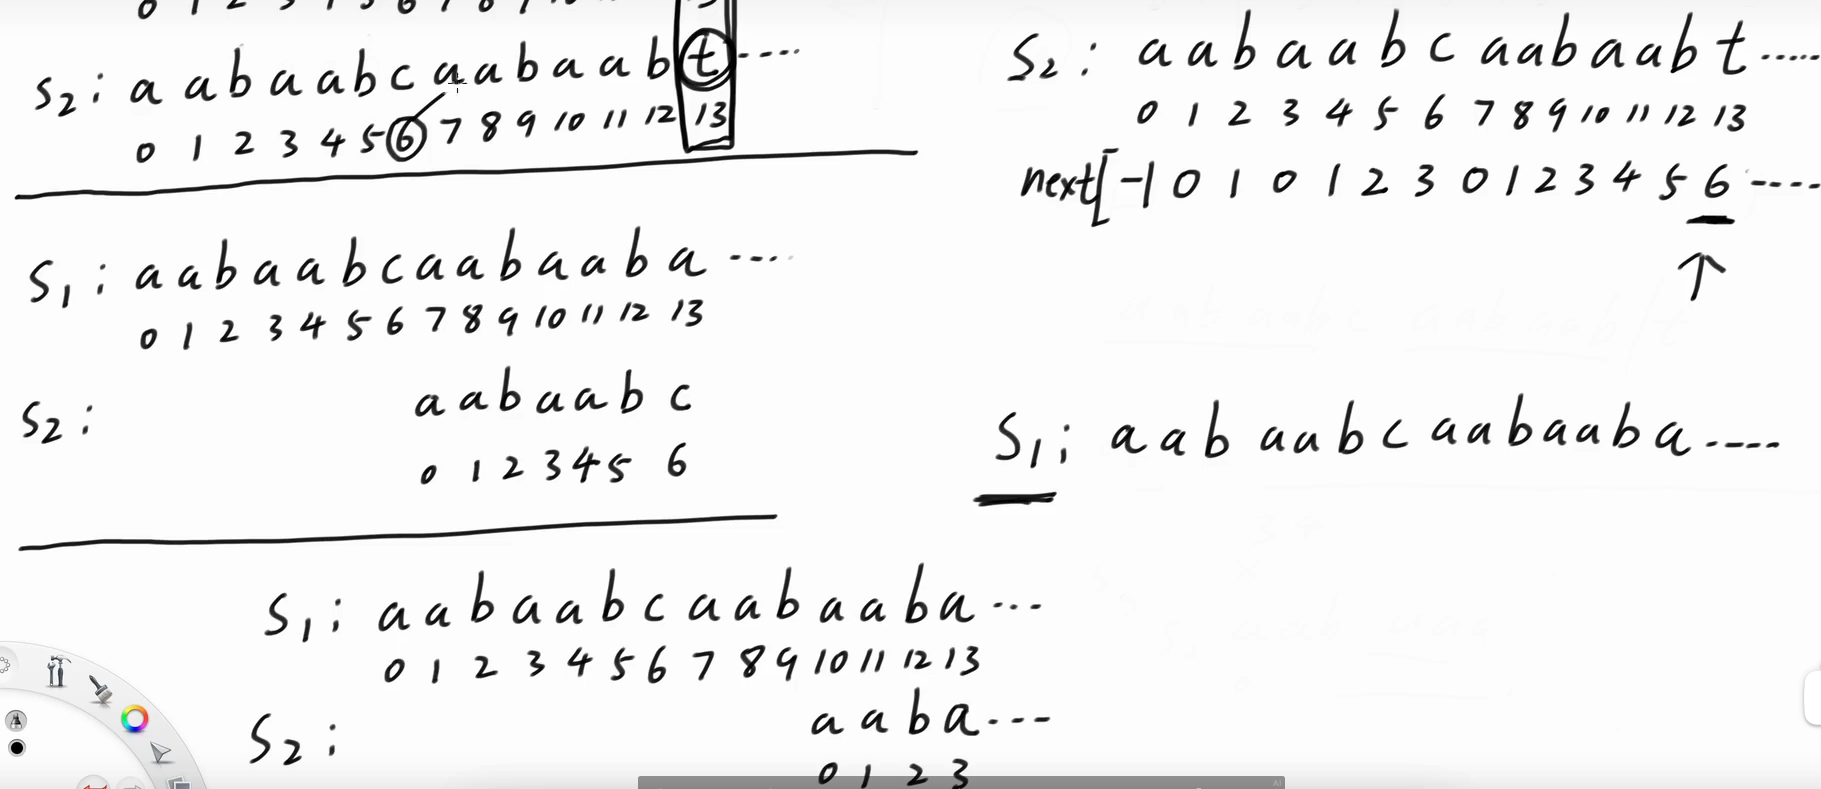 S2: a a b a a b c a a b a a b t ----
0 1 2 3 4 5 6 7 8 9 10 11 12 13
S1: a a b a a b c a a b a a b a ----
0 1 2 3 4 5 6 7 8 9 10 11 12 13
S2: a a b a a b c
0 1 2 3 4 5 6
S1: a a b a a b c a a b a a b a ---
0 1 2 3 4 5 6 7 8 9 10 11 12 13
S2: a a b a ---
0 1 2 3
S2: a a b a a b c a a b a a b t .....
0 1 2 3 4 5 6 7 8 9 10 11 12 13
next[ -1 0 1 0 1 2 3 0 1 2 3 4 5 6 ----
S1: a a b a a b c a a b a a b a ----